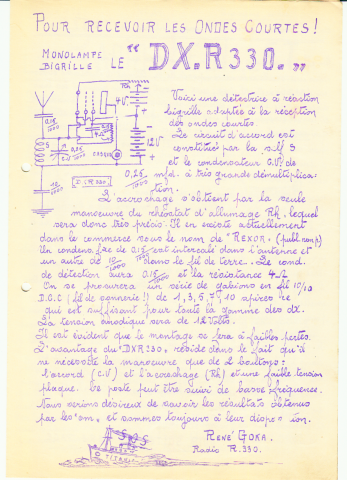 POUR RECEVOIR LES ONDES COURTES!
MONOLAMPE
BIGRILLE
LE "DX.R330."
Voici une détectrice à réaction
bigrille adaptée à la réception
des ondes courtes
Le circuit d'accord est
constitué par la self S
et le condensateur C.V. de
0,25/1000 mfd. à très grande démultiplica-
tion.
L'accrochage s'obtient par la seule
manoeuvre du rhéostat d'allumage Rh. lequel
sera donc très précis. Il en existe actuellement
dans le commerce sous le nom de "REXOR." (publ. non p.)
Un condens. fixe de 0.15/1000 est intercalé dans l'antenne et
un autre de 10/1000 dans le fil de terre. Le cond.
de détection aura 0.15/1000 et la résistance 4Ω
On se procurera un série de gabions en fil 10/10
D.C.C (fil de sonnerie!) de 1, 3, 5, 7, 10 spires ce
qui est suffisant pour toute la gamme des dx.
La tension anodique sera de 12 volts.
Il est évident que le montage se fera à faibles pertes.
L'avantage du "DXR330" réside dans le fait qu'il
ne nécessite la manoeuvre que de 2 boutons:
l'accord (C.V) et l'accrochage (Rh) et une faible tension
plaque. Ce poste peut être suivi de basse fréquence.
Nous serions désireux de savoir les résultats obtenus
par les 'om, et sommes toujours à leur dispos ion.
RENÉ GOKA.
Radio R.330.
0,15/1000
S
C.V.
0,25/1000
4Ω
4V
Rh
12V
CASQUE
10/1000
D.X.R330
S O S